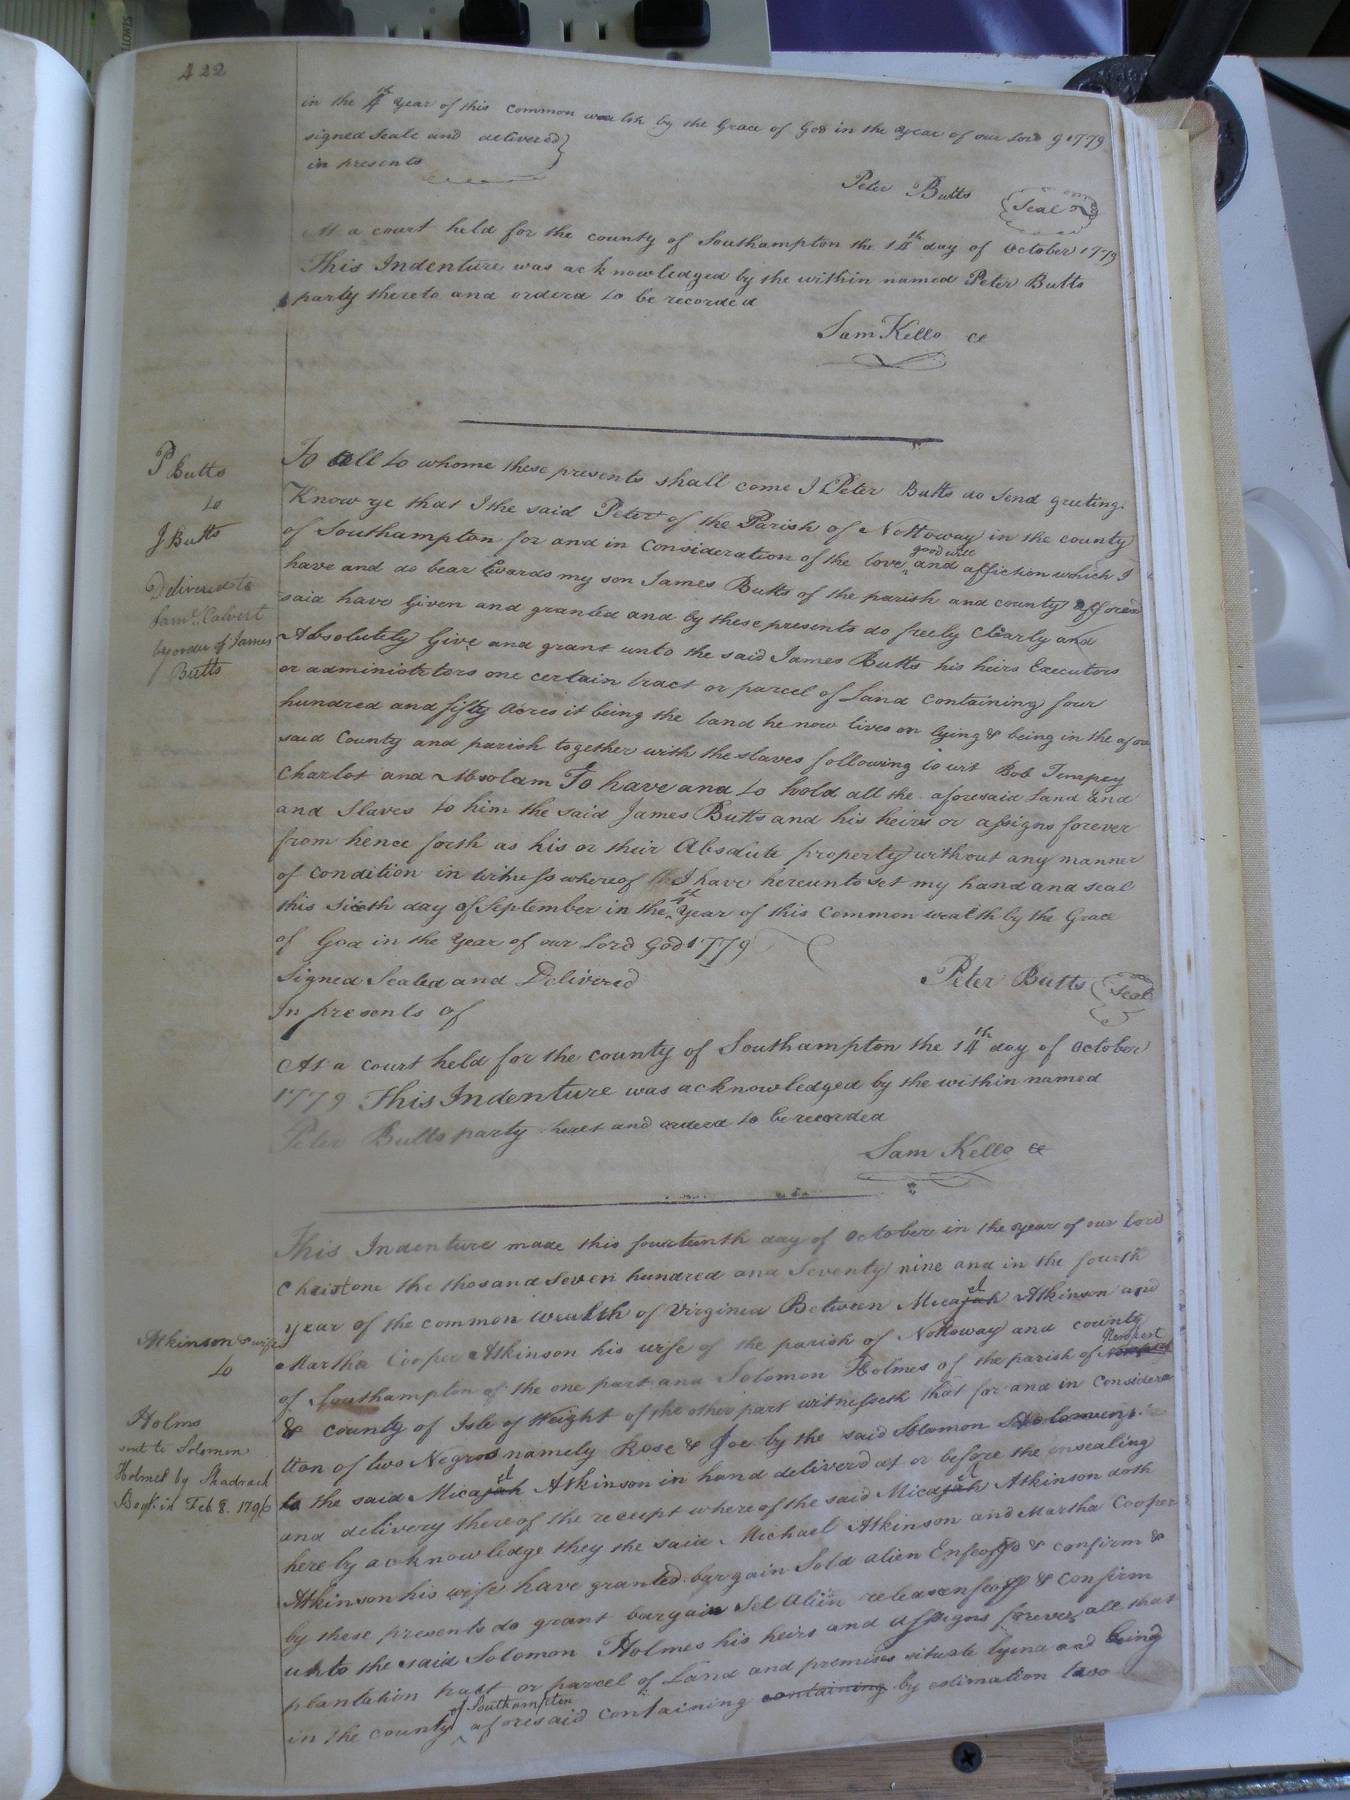 422
in the 4th year of this Common wealth by the Grace of God in the year of our Lord g 1779
signed Seale and delivered
in presents
Peter Butts Seal
At a court held for the county of Southampton the 14th day of October 1779
This Indenture was acknowledged by the within named Peter Butts
party thereto and orderd to be recorded
Sam Kello ce
P Butts
to
J Butts
Delivered to
Sam. Calvert
by order of James
Butts
To all to whome these presents shall come I Peter Butts do Send greeting
Know ye that I the said Peter of the Parish of Nottoway in the county
of Southampton for and in Consideration of the love good will and affiction which I
have and do bear towards my son James Butts of the parish and county afforea
said have Given and granted and by these presents do freely Clearly and
Absolutely Give and grant unto the said James Butts his heirs Executors
or administrtors one certain tract or parcel of Land Containing four
hundred and fifty acres it being the land he now lives on lying & being in the afore
said County and parish together with the slaves following to wit Bob
Charlot and Absolam To have and to hold all the aforesaid Land and
and Slaves to him the said James Butts and his heirs or assigns forever
from hence forth as his or their Absolute property without any manner
of Condition in witness whereof I have hereunto set my hand and seal
this Sixth day of September in the Year of this Common wealth by the Grace
of God in the Year of our Lord God 1779
Signed Sealed and Delivered
Peter Butts Seal
In presents of
At a court held for the county of Southampton the 14th day of October
1779 This Indenture was acknowledged by the within named
Peter Butts party and orderd to be recorded
Sam Kello ce
Atkinson & wife
to
Holms
sent to Solomon
Holmes by Shadrack
Feb 8. 1796
This Indenture made this fourteenth day of October in the year of our lord
Christ one the thosand Seven hundred and Seventy nine and in the fourth
year of the common wealth of Virginia Between Micajah el Atkinson and
Martha Cooper Atkinson his wife of the parish of Nottoway and county
of Southampton of the one part and Solomon Holmes of the parish of Newport
& county of Isle of Wight of the other part witnesseth that for and in Considera
tion of two Negros namely Rose & Joe by the said Solomon
to the said Micajah el Atkinson in hand deliverd at or before the ensealing
and delivery thereof the receipt where of the said Micajah el Atkinson doth
here by acknowledge they the said Michael Atkinson and Martha Cooper
Atkinson his wife have granted bargain Sold alien Enfeoffd & confirm &
by these presents do grant bargain Sel alien & Confirm
unto the said Solomon Holmes his heirs and assigns forever all that
plantation tract or parcel of Land and premises situate lying and being
in the county of Southampton aforesaid Containing containing by estimation two